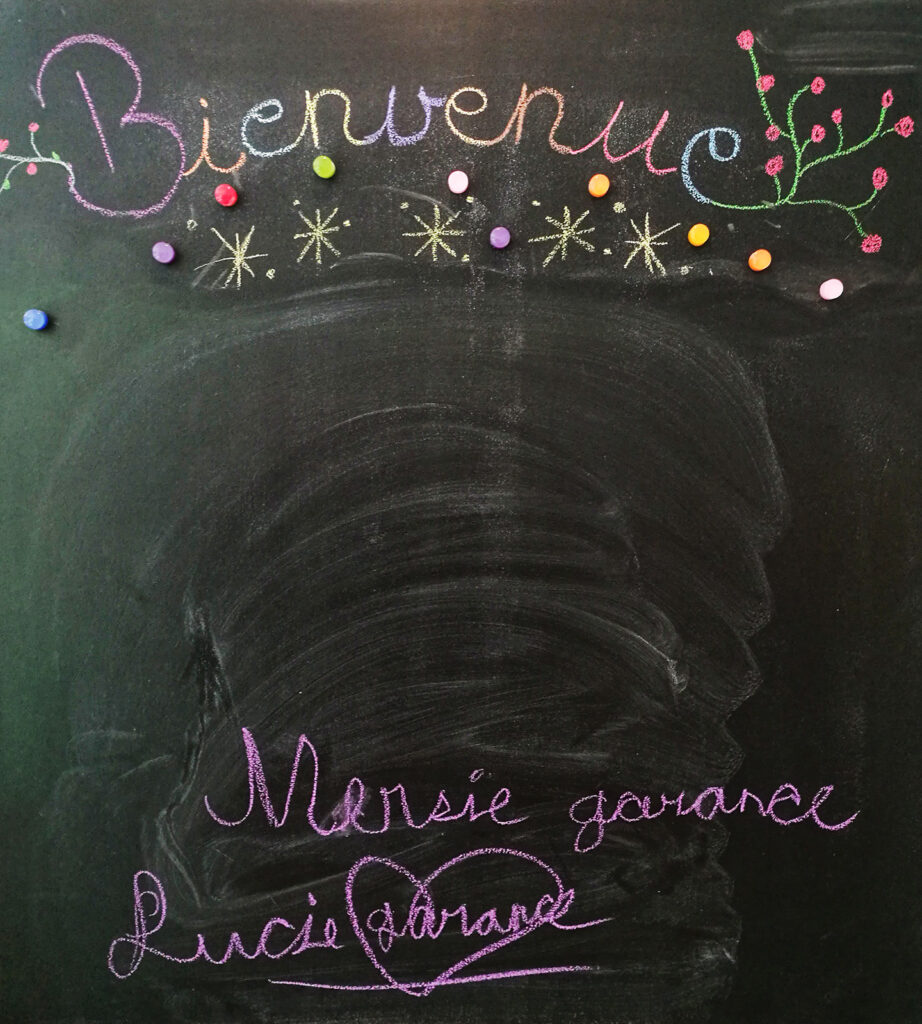 Bienvenue
Mersie garance
Lucie garance